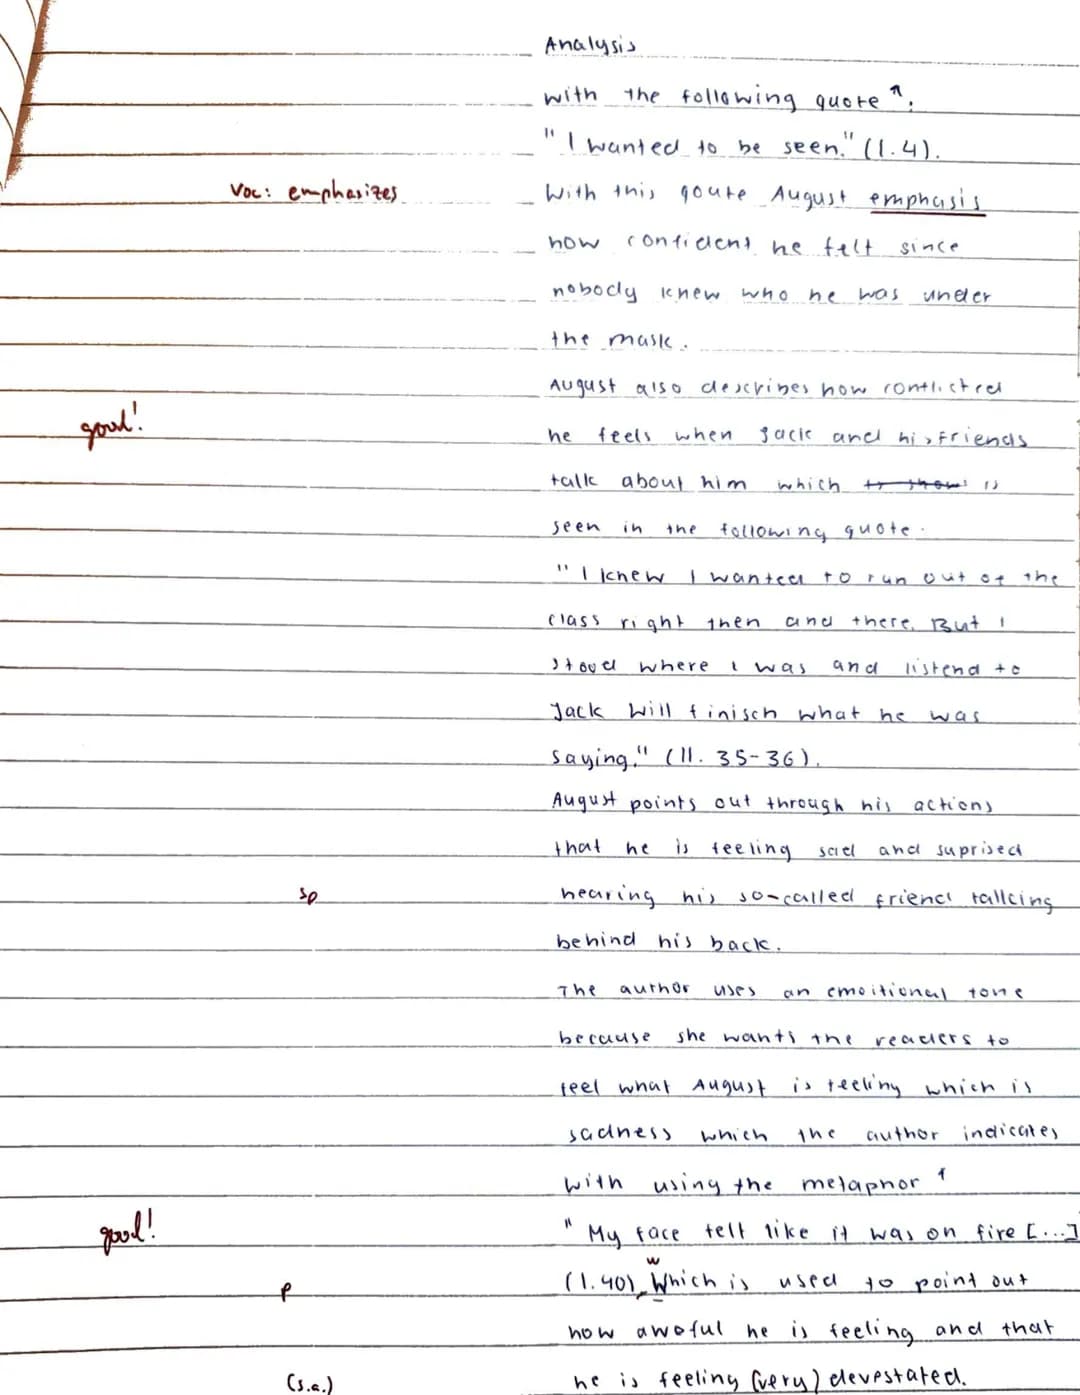 Analysis
with the following quote ↑.
"I wanted to be seen." (l.4).
Voc: emphasizes With this qoute August emphasis
how confident he felt since
nobody knew who he was under
the mask.
August also describes how conflicted
good! he feels when Jack and his friends
talk about him which is
seen in the following quote.
"I knew I wanted to run out of the
class right then and there. But I
stood where I was and listend to
Jack Will finisch what he was
saying." (ll. 35-36).
August points out through his actions
that he is feeling sad and suprised
sp hearing his so-called friend talking
behind his back.
The author uses an emoitional tone
because she wants the readers to
feel what August is feeling which is
sadness which the author indicates
with using the metaphor ↑
good! "My face felt like it was on fire [...]
w
p (l.40), Which is used to point out
how aweful he is feeling and that
(s.a.) he is feeling (very) devestated.